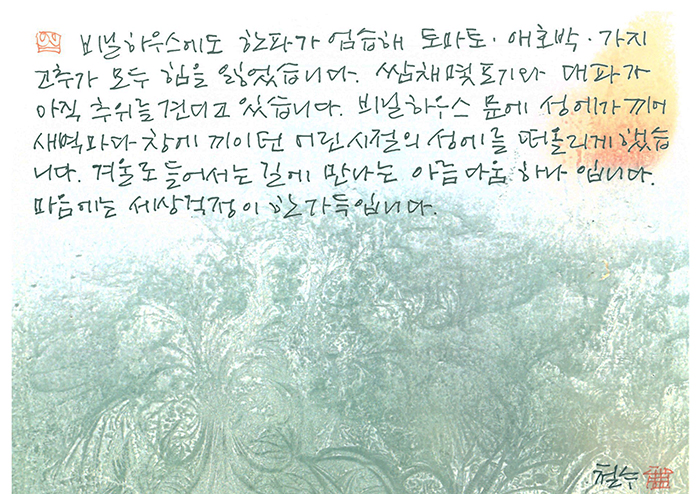 비닐하우스에도 한파가 엄습해 토마토·애호박·가지
고추가 모두 힘을 잃었습니다. 쌈채 몇포기와 대파가
아직 추위를 견디고 있습니다. 비닐하우스 문에 성에가 끼어
새벽마다 창에 끼이던 어린시절의 성에를 떠올리게했습
니다. 겨울초 들어서는 길에 만나는 아름다움 하나 입니다.
마음에는 세상걱정이 한가득입니다.
철수